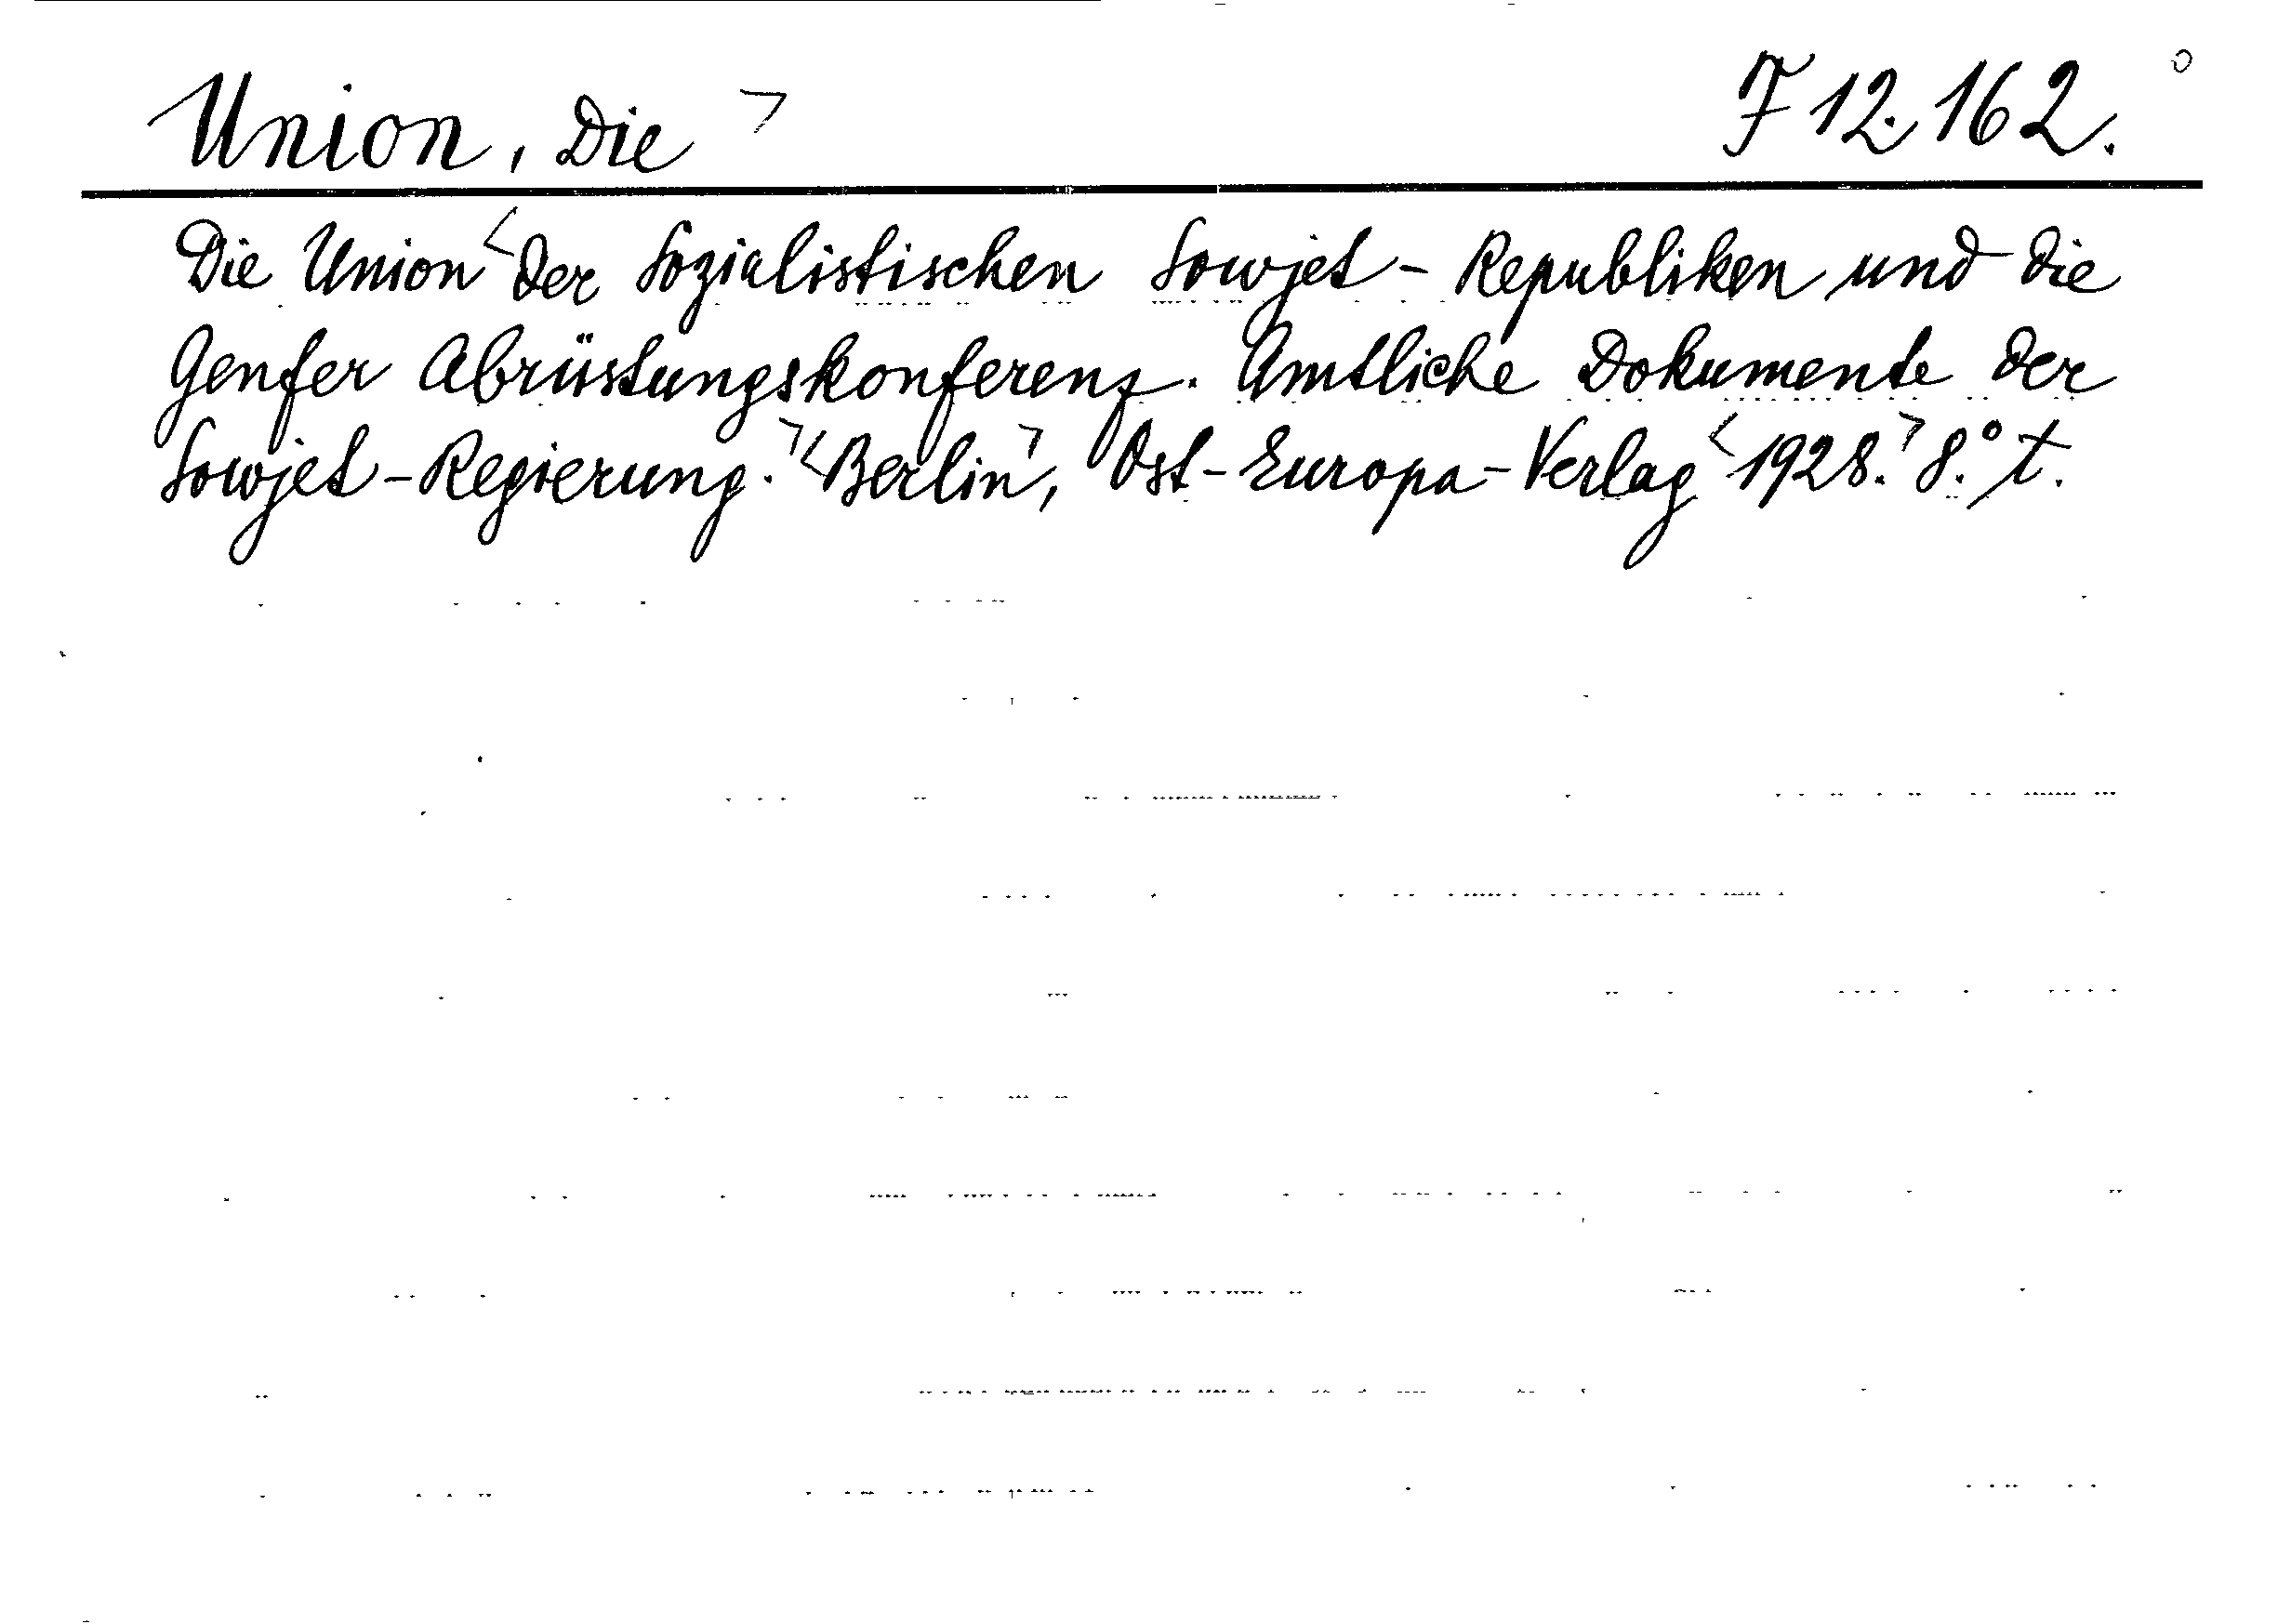 Union, Die                    F 12.162.
Die Union der Sozialistischen Sowjet-Republiken und die
Genfer Abrüstungskonferenz. Amtliche Dokumente der
Sowjet-Regierung. Berlin, Ost-Europa-Verlag 1928. 8.° t.